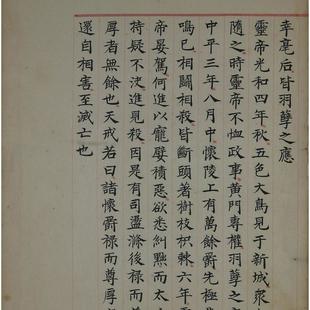 幸毫后皆羽孽之應
靈帝光和四年秋五色大鳥見于新城衆
隨之時靈帝不恤政事黃門專權羽孽之
中平三年八月中懷陵上有萬餘爵先極
鳴已相鬬相殺皆斷頭著樹枝枳棘六年
帝晏駕何進以寵嬖積惡欲悉糾黜而太
持疑不決進見殺因是有司盪滌後祿而
厚者無餘也天戒若曰諸懷爵祿而尊厚
還自相害至滅亡也